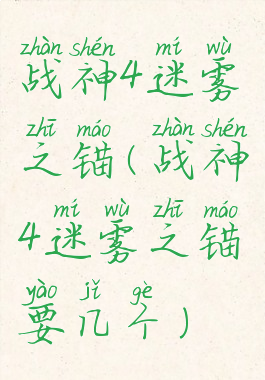 zhàn shén mí wù
战神4迷雾
zhī máo zhàn shén
之锚(战神
mí wù zhī máo
4迷雾之锚
yào jǐ gè
要几个)